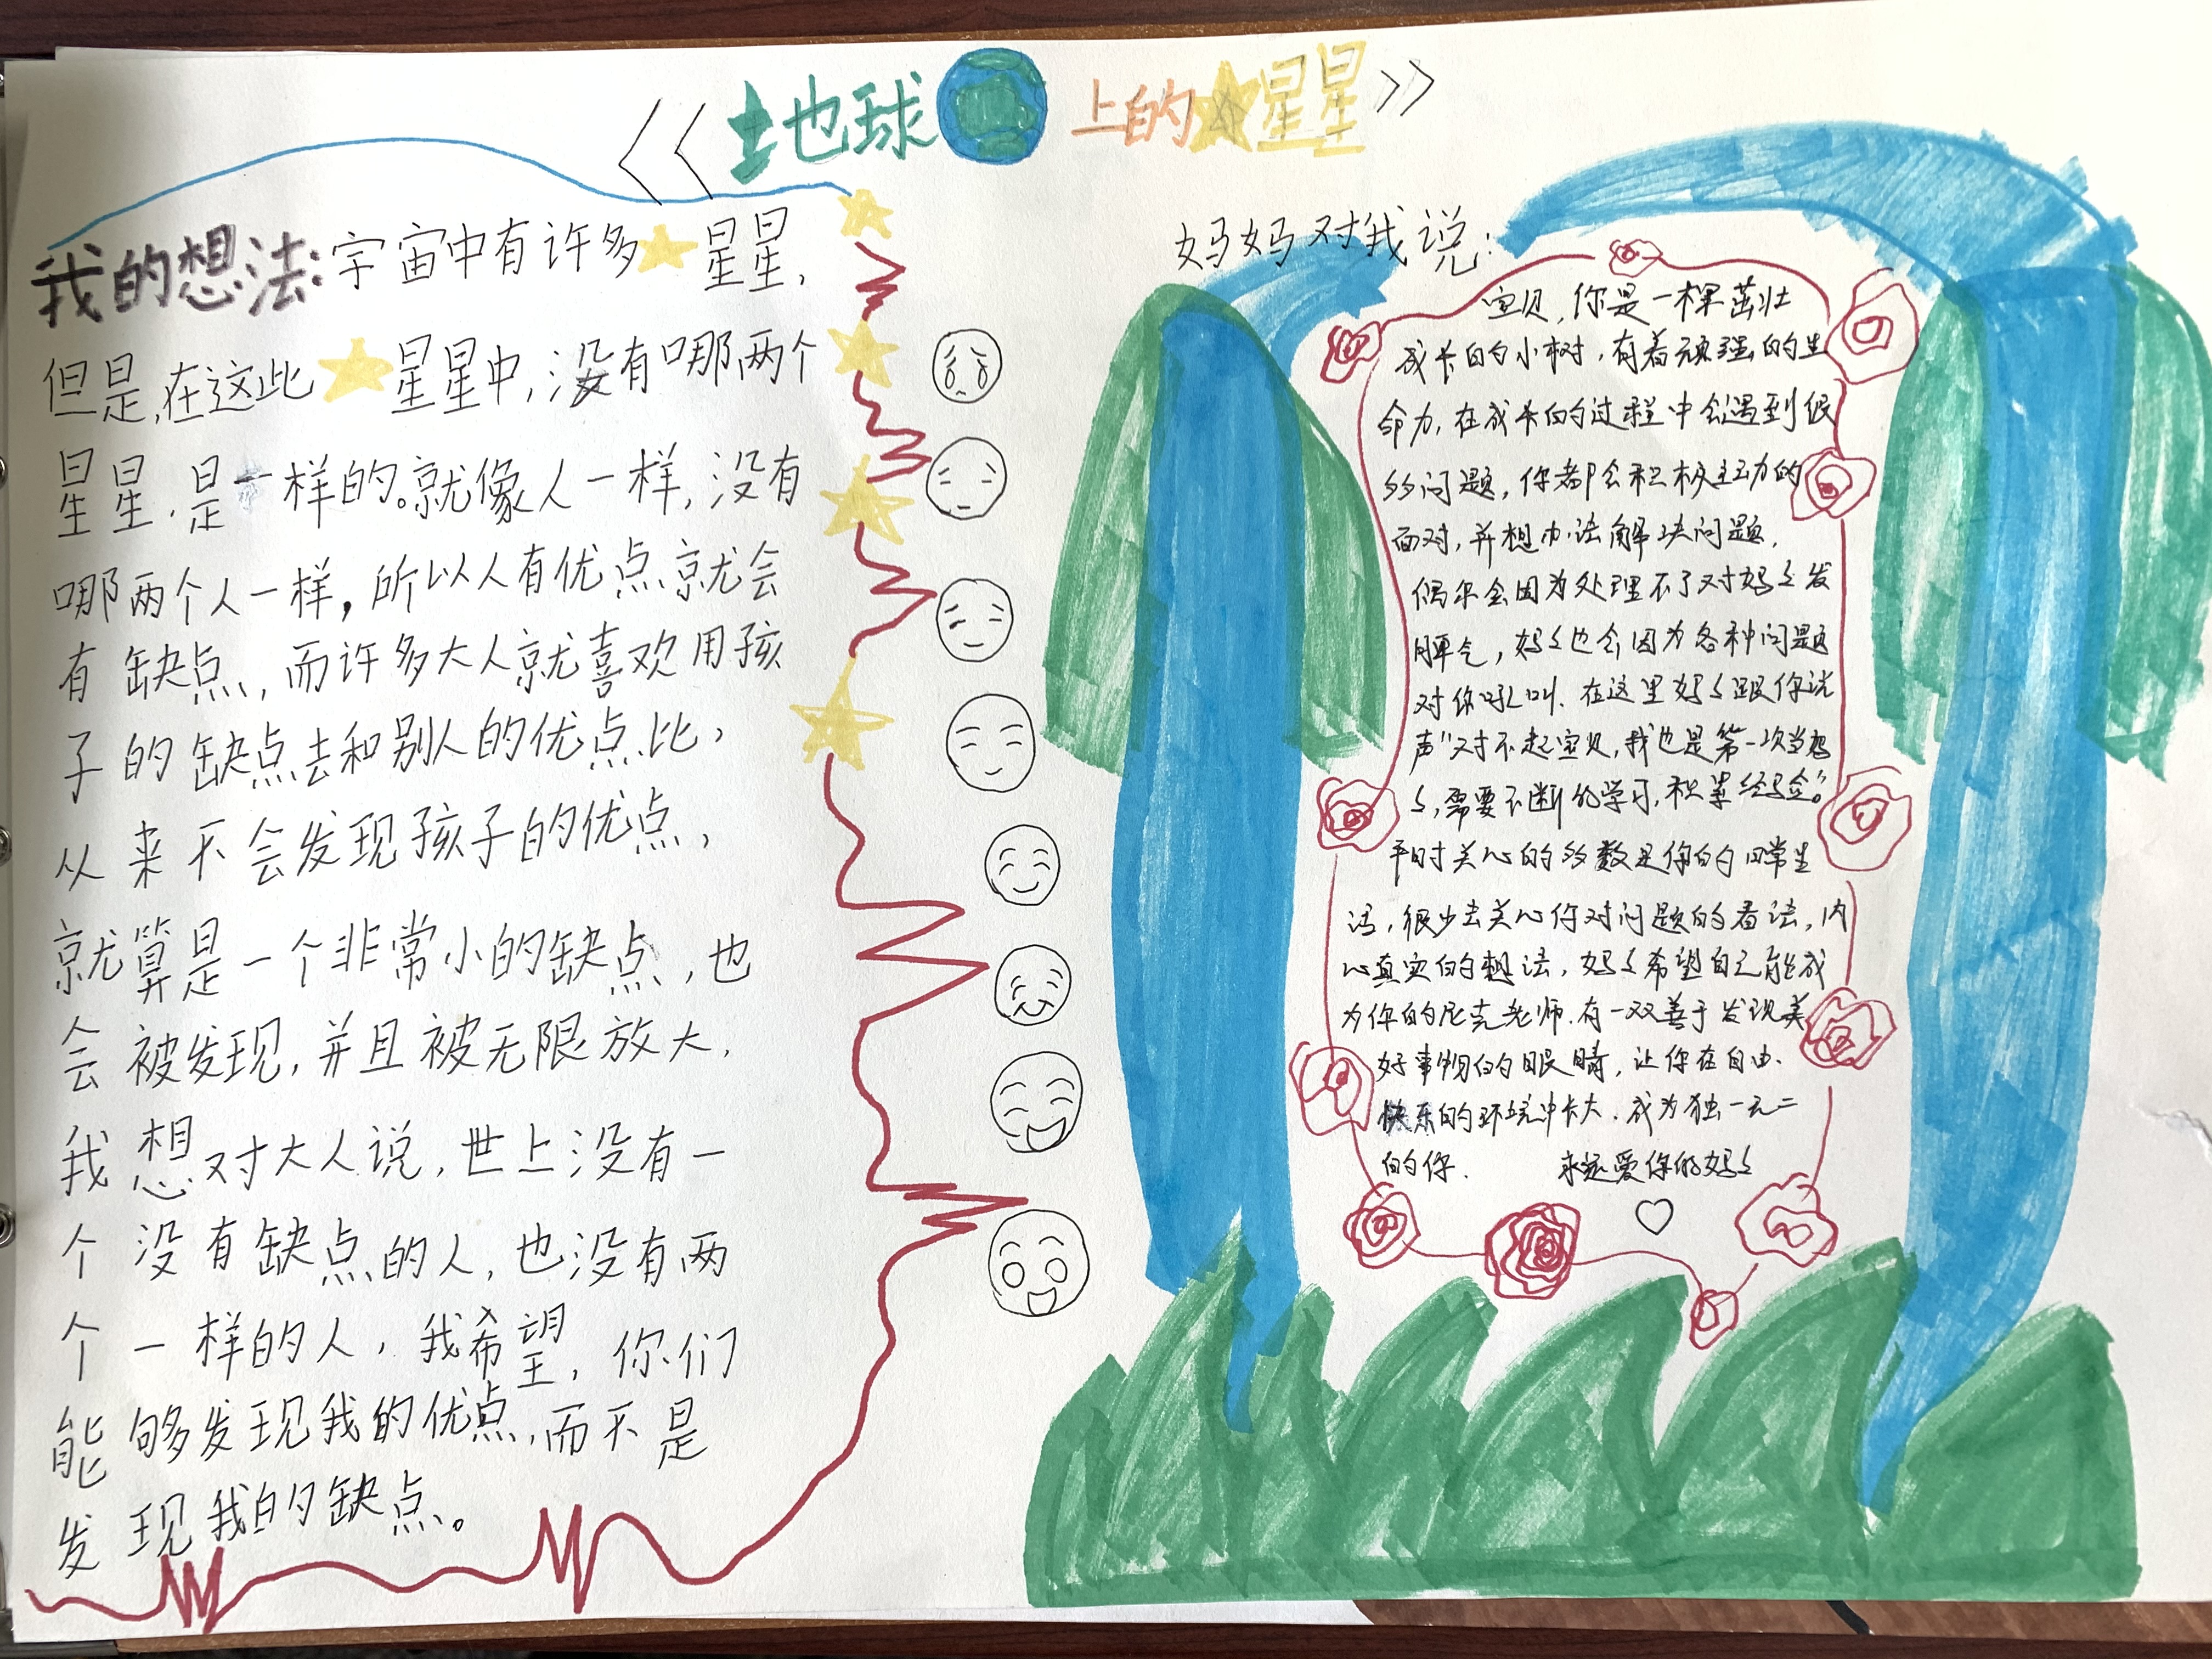 《地球上的星星》
我的想法:宇宙中有许多星星,
但是,在这些星星中,没有哪两个
星星,是一样的。就像人一样,没有
哪两个人一样,所以人有优点就会
有缺点,而许多大人就喜欢用孩
子的缺点去和别人的优点比,
从来不会发现孩子的优点,
就算是一个非常小的缺点,也
会被发现,并且被无限放大,
我想对大人说,世上没有一
个没有缺点的人,也没有两
个一样的人,我希望,你们
能够发现我的优点,而不是
发现我的缺点。
妈妈对我说:
宝贝,你是一棵茁壮
成长的小树,有着顽强的生
命力,在成长的过程中会遇到很
多问题,你都会积极主动的
面对,并想办法解决问题,
偶尔会因为处理不了对妈妈发
脾气,妈妈也会因为各种问题
对你吼叫、在这里妈妈跟你说
声"对不起宝贝,我也是第一次当妈
妈,需要不断的学习,积累经验。"
平时关心的多数是你的日常生
活,很少去关心你对问题的看法,内
心真实的想法,妈妈希望自己能成
为你的尼克老师.有一双善于发现美
好事物的眼睛,让你在自由、
快乐的环境中长大.成为独一无二
的你. 永远爱你的妈妈